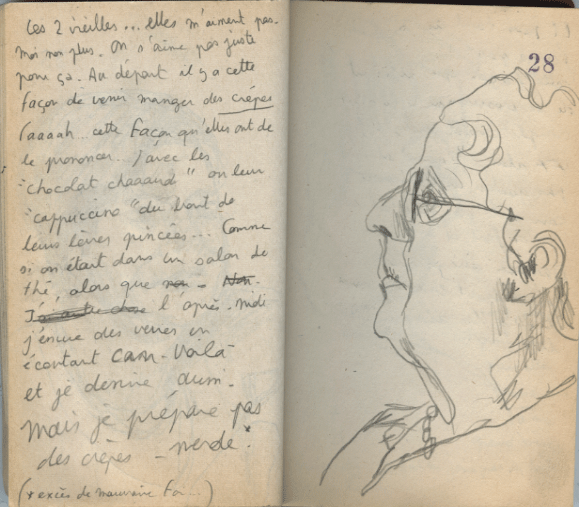 Les 2 vieilles... elles m'aiment pas.
Moi non plus. On s'aime pas juste
pour ça. Au départ il y a cette
façon de venir manger des crêpes
raaaah... cette façon qu'elles ont de
le prononcer... avec les
"chocolat chaaaud" ou leur
"cappuccino" du bout de
leurs lèvres pincées... Comme
si on était dans un salon de
thé, alors que non - Non.
l'après-midi
j'essuie des verres en
écoutant Cam. Voilà
et je dessine aussi.
Mais je prépare pas
des crêpes - merde*
(* excès de mauvaise foi...)
28